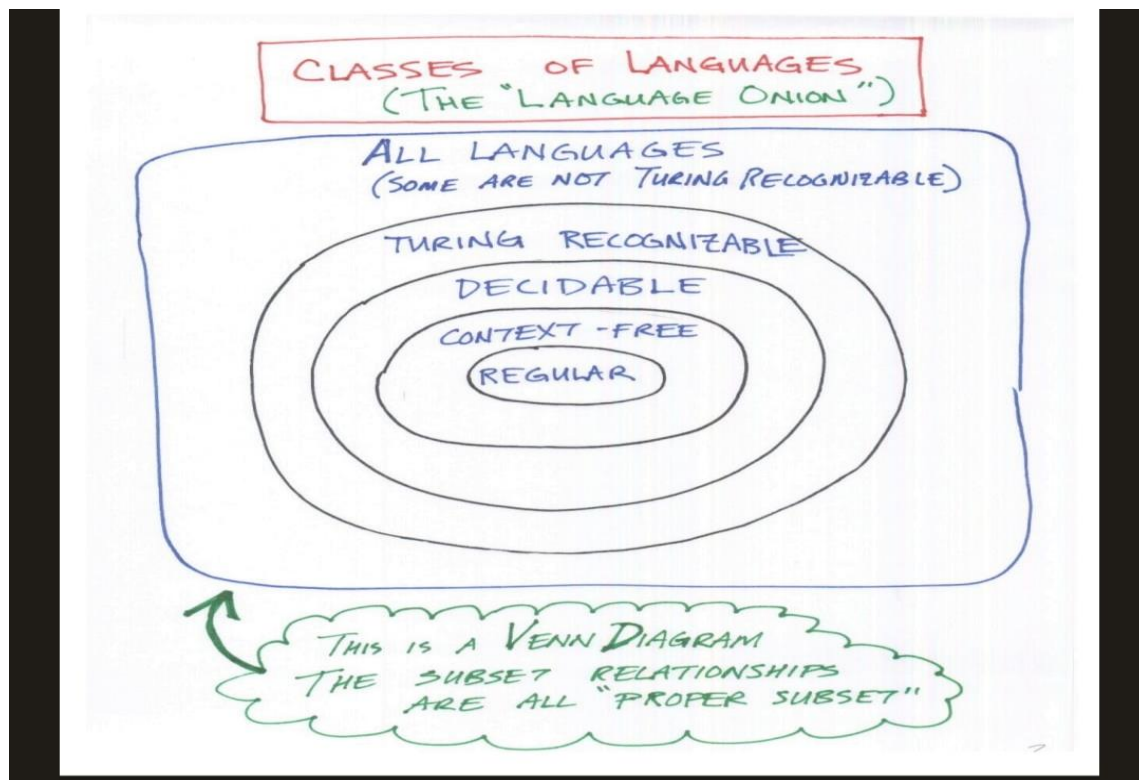 CLASSES OF LANGUAGES
(THE "LANGUAGE ONION")
ALL LANGUAGES
(SOME ARE NOT TURING RECOGNIZABLE)
TURING RECOGNIZABLE
DECIDABLE
CONTEXT-FREE
REGULAR
THIS IS A VENN DIAGRAM
THE SUBSET RELATIONSHIPS
ARE ALL "PROPER SUBSET"